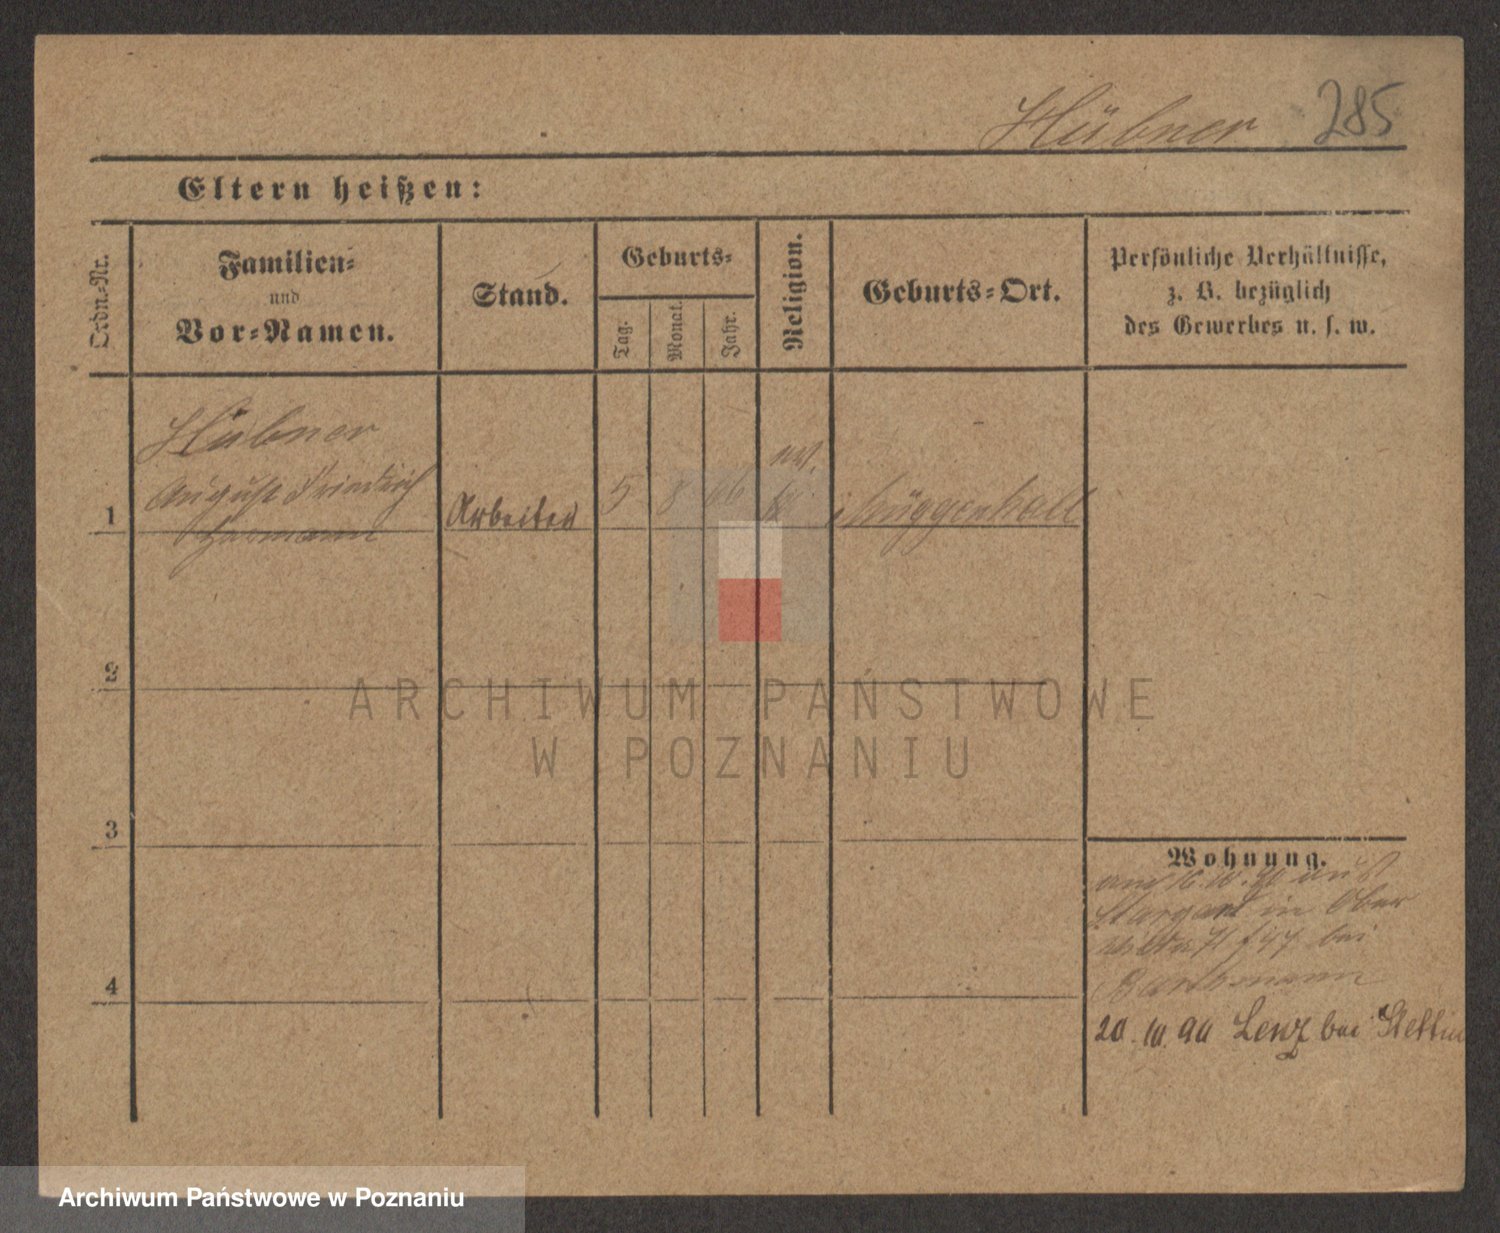 Hübner 285
Eltern heißen:
Ordn.-Nr.
Familien-
und
Vor-Namen.
Stand.
Geburts-
Tag.
Monat.
Jahr.
Religion.
Geburts-Ort.
Persönliche Verhältnisse,
z. B. bezüglich
des Gewerbes u. s. w.
Hübner
August Friedrich
Hermann
1
Arbeiter
5 8 66
ev.
Müggenhall
2
ARCHIWUM PAŃSTWOWE
W POZNANIU
3
Wohnung.
Stargard in Ober
bei
4
20.10.90 Lenz bei Stettin
Archiwum Państwowe w Poznaniu